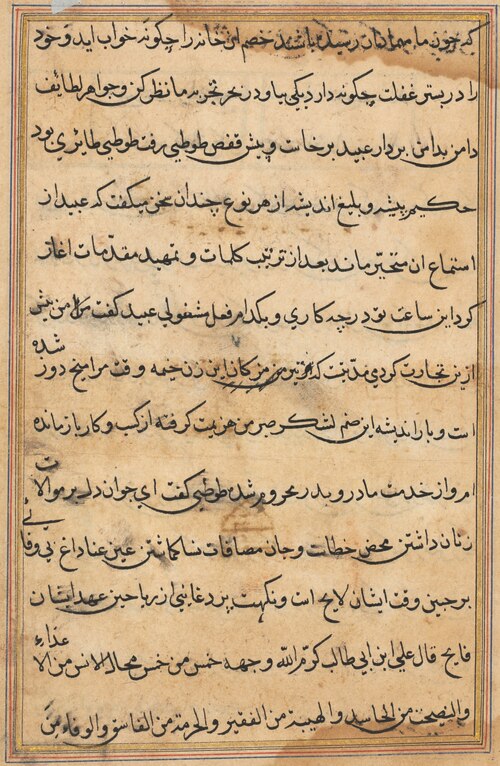 که چون ما مهمانان رسیده باشند خصم این خانه را چکونه خواب اید و خود
را در بستر غفلت چکونه دارد یکی بیا و در خزینه ما نظر کن و جواهر لطایف
دامن بدامن بردار عبید برخاست و پیش قفص طوطی رفت طوطی طایری بود
حکیم پیشه و بلیغ اندیشه از هر نوع چندان سخن میکفت که عبید از
استماع ان متحیر ماند بعد از ترتیب کلمات و تمهید مقدمات اغاز
کرد این ساعت تو در چه کاری و بکدام فعل مشغولی عبید کفت مرا من پیش
ازین تجارت کردی مدتیست که این زن خیمه وقت مرا میخ دوز شده
است و بار اندیشه این صنم لشکر صبر من هزیمت کرفته از کسب و کار باز مانده
ام و از خدمت مادر و پدر محروم شده طوطی کفت ای جوان دلبر موالات
زنان داشتن محض خطاست و جان مصافات نسا کماشتن عین عنا داغ بی وفائی
بر جبین وقت ایشان لایح است و نکهت بر دغایی از ریاحین عهد ایشان
فایح قال علی ابن ابی طالب کرم الله وجهه خمس من خمس محال الانس من الاعداء
والنصحت من الحاسد والهیبة من الفقیر والحرمة من الفاسق والوفاء من